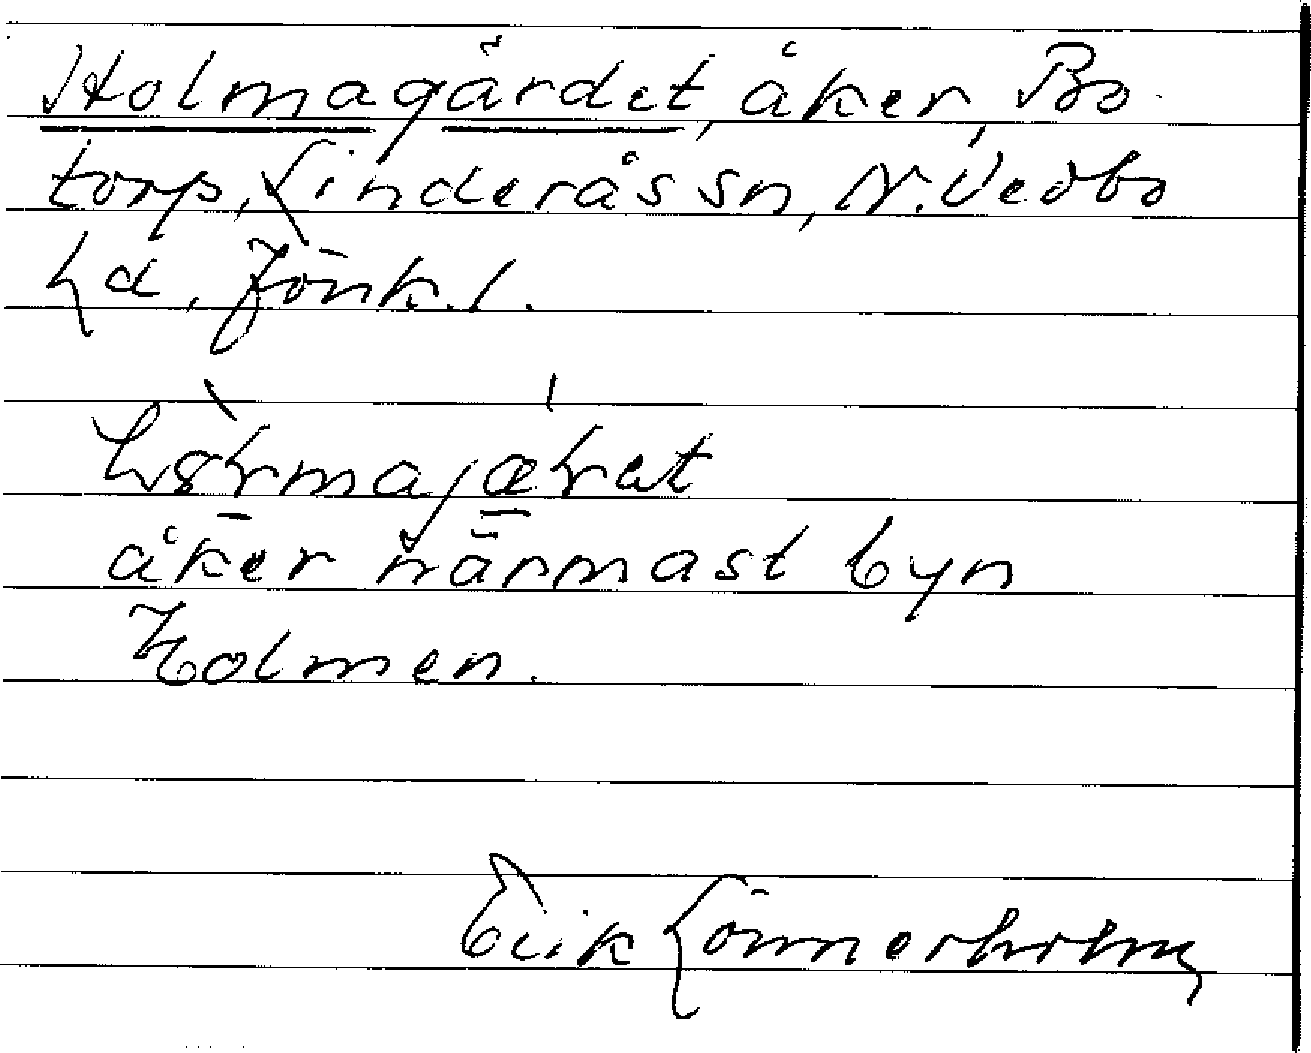 Holmagärdet, åker, Bo-
torp, Linderås sn, N. Vedbo
hd, Jönk. l.
åker närmast byn
Holmen.
Erik Lönnerholm